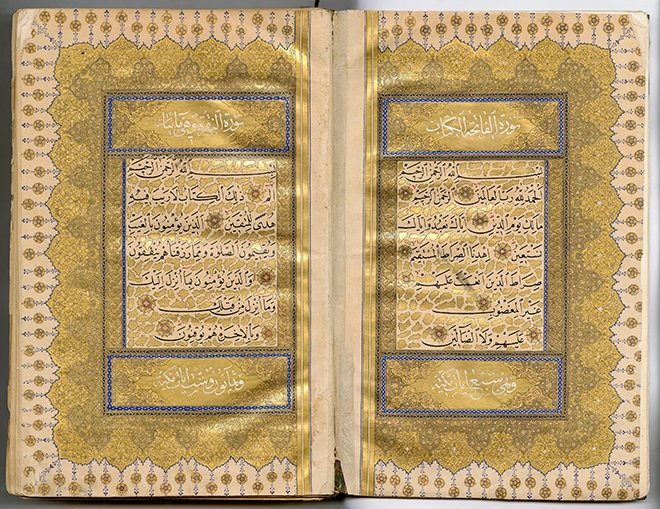 سورة الفاتحة الكتاب
بسم الله الرحمن الرحيم
الحمد لله رب العالمين الرحمن الرحيم
مالك يوم الدين اياك نعبد واياك
نستعين اهدنا الصراط المستقيم
صراط الذين انعمت عليهم
غير المغضوب
عليهم ولا الضالين
وهي سبع ايات مكية
سورة البقرة مايتان
بسم الله الرحمن الرحيم
الم ذلك الكتاب لا ريب فيه
هدى للمتقين الذين يؤمنون بالغيب
ويقيمون الصلوة ومما رزقناهم ينفقون
والذين يؤمنون بما انزل اليك
وما انزل من قبلك
وبالاخرة هم يوقنون
وثمانون وست ايات